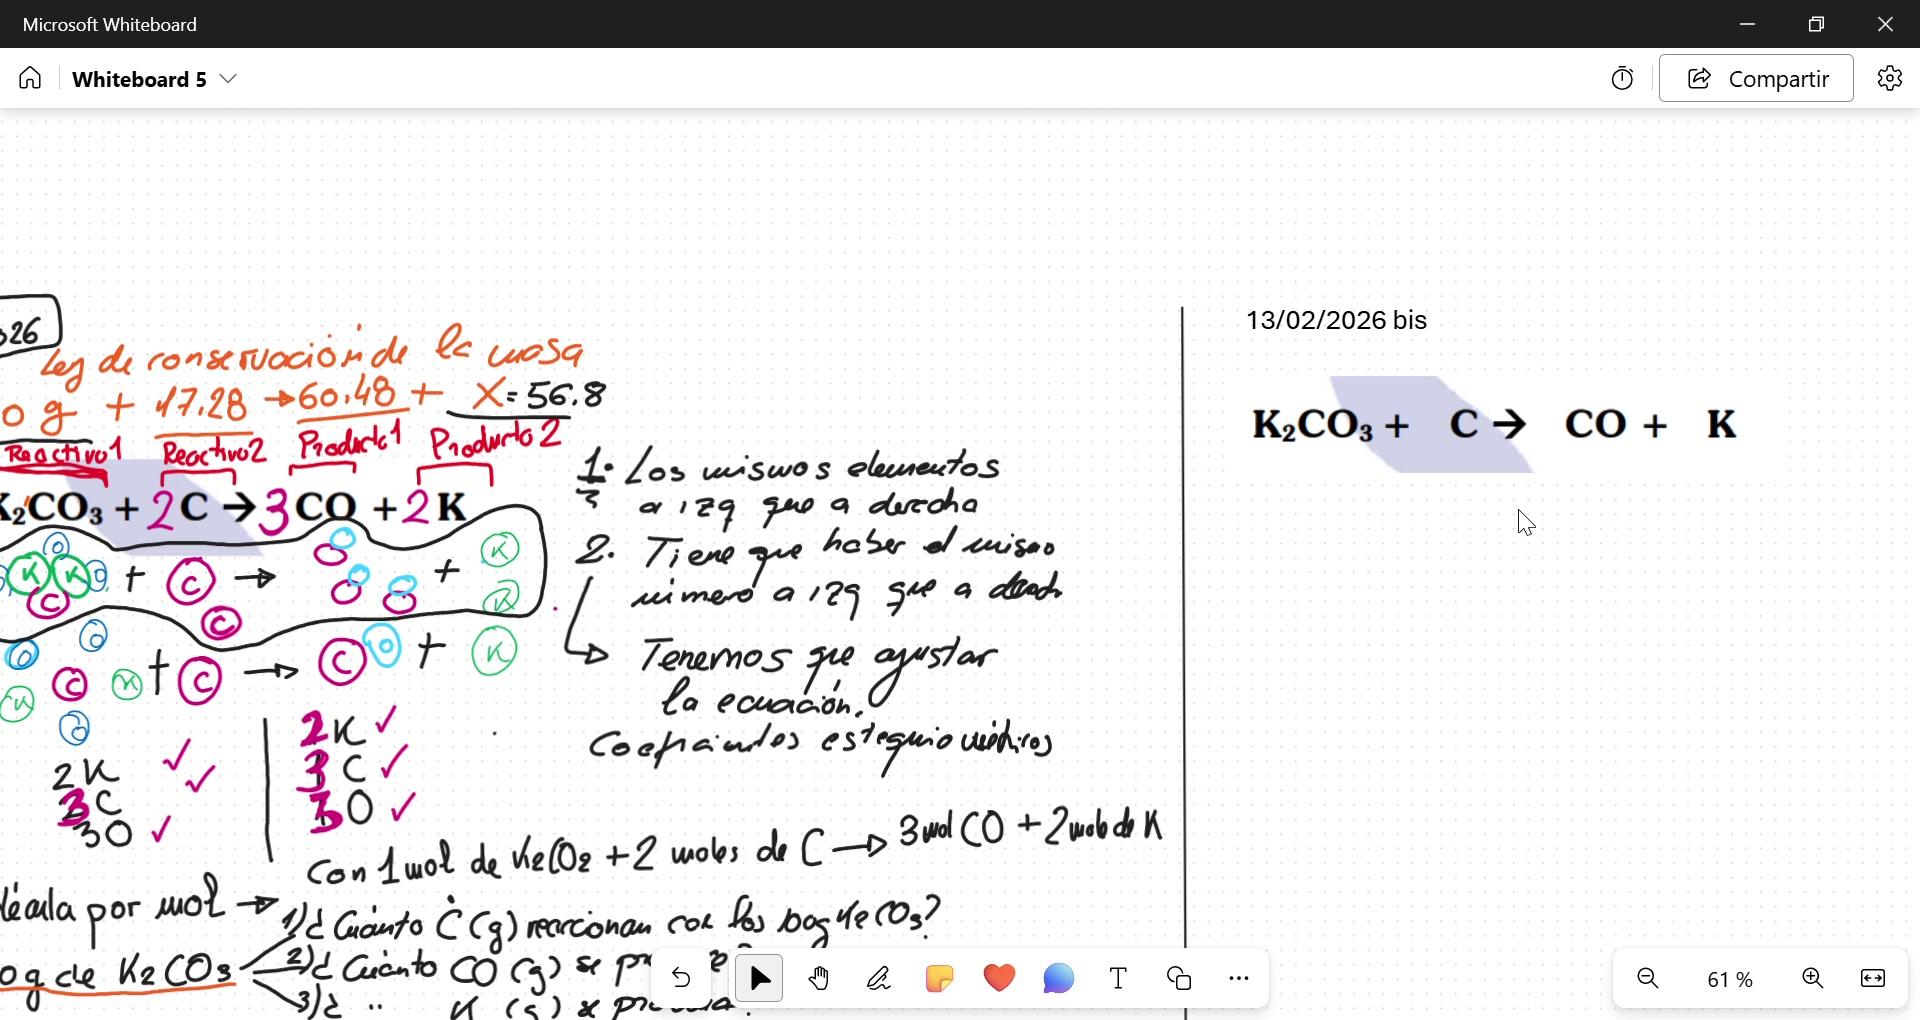 Microsoft Whiteboard
Whiteboard 5
Compartir
26
Ley de conservación de la masa
0 g + 17.28 → 60.48 + X = 56.8
Reactivo1 Reactivo2 Producto1 Producto2
K₂CO₃ + 2 C → 3 CO + 2 K
O K K O C + C C → + K K
O C K + C → C O + K
2K ✓✓
3C
3O ✓
2K ✓
3C ✓
3O ✓
1. Los mismos elementos
a izq que a derecha
2. Tiene que haber el mismo
número a izq que a derech
→ Tenemos que ajustar
la ecuación.
Coeficientes estequiométricos
Con 1 mol de K₂CO₂ + 2 moles de C → 3 mol CO + 2 mols de K
por mol → 1) ¿Cuánto C (g) reaccionan con los
0 g de K₂CO₃ 2) ¿Cuánto CO (g) se
3) ¿ " K (g) se
13/02/2026 bis
K₂CO₃ + C → CO + K
61 %